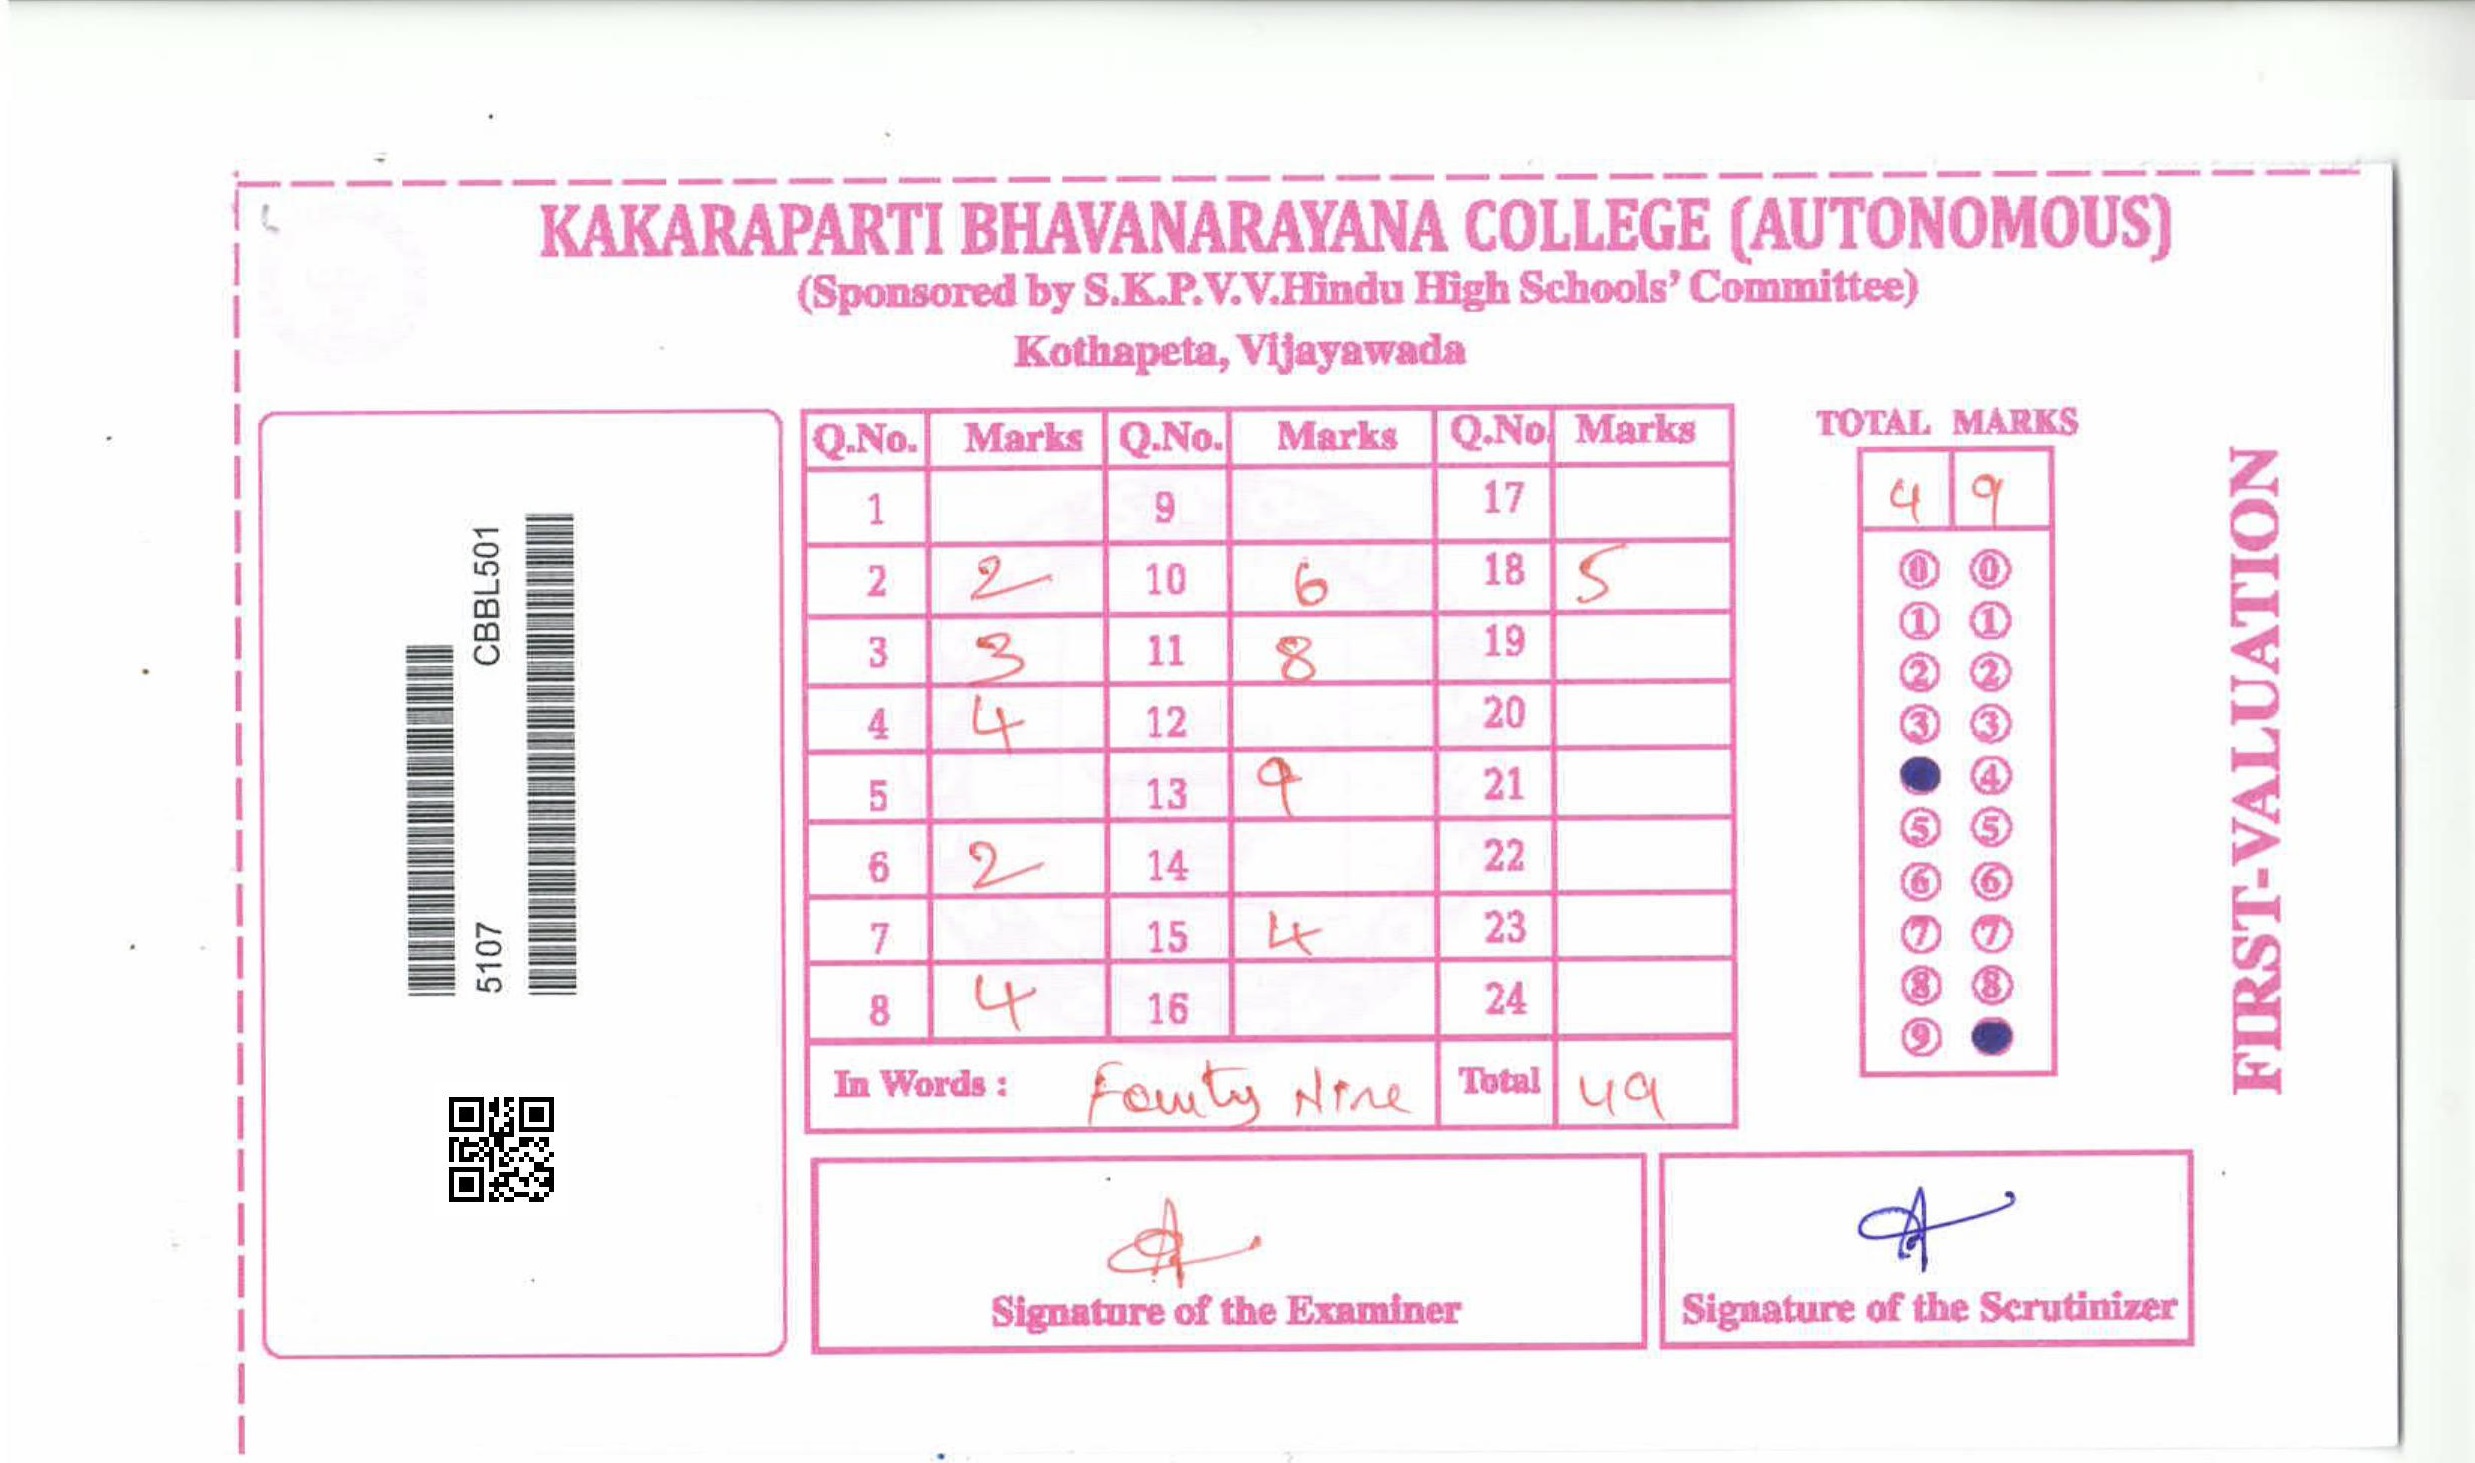 KAKARAPARTI BHAVANARAYANA COLLEGE (AUTONOMOUS)
(Sponsored by S.K.P.V.V.Hindu High Schools' Committee)
Kothapeta, Vijayawada
CBBL501
5107
Q.No. Marks Q.No. Marks Q.No. Marks
1 9 17
2 2 10 6 18 5
3 3 11 8 19
4 4 12 20
5 13 9 21
6 2 14 22
7 15 4 23
8 4 16 24
In Words : Fourty Nine Total 49
TOTAL MARKS
4 9
0 0
1 1
2 2
3 3
4
5 5
6 6
7 7
8 8
9
FIRST-VALUATION
Signature of the Examiner
Signature of the Scrutinizer